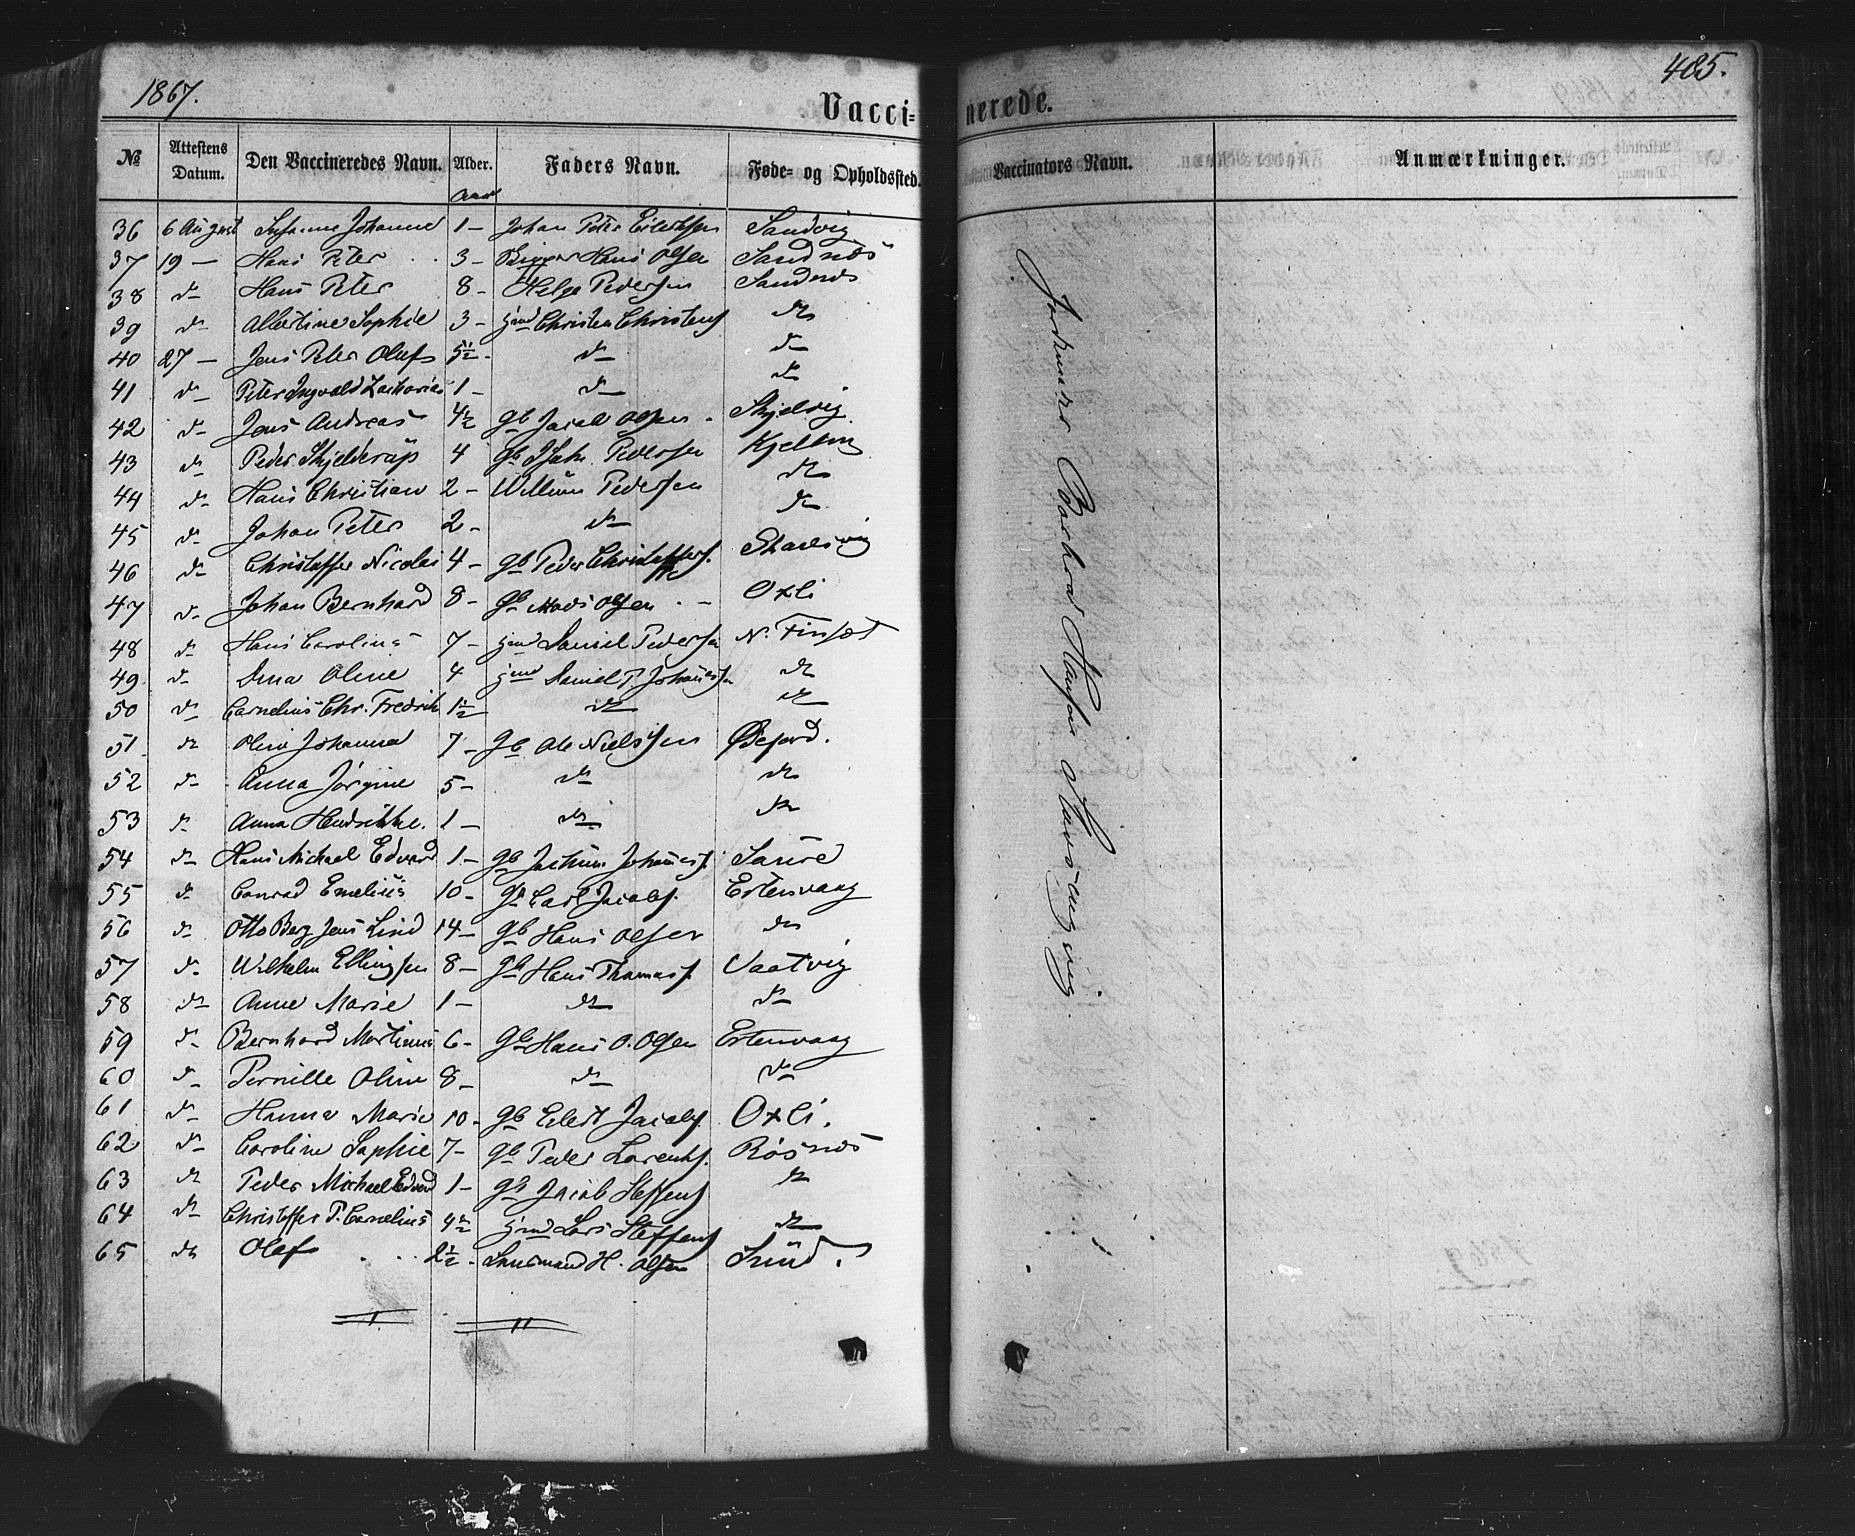 1867.
405.
Vaccinerede.
№ Attestens Datum. Den Vaccineredes Navn. Alder. Faders Navn. Føde- og Opholdssted. Vaccinators Navn. Anmærkninger.
Aar
36 6 August Susanne Johanne 1 - Johan Peter Eilertsen Sandvig
37 19 — Hans Peter 3 - Hans Olsen Sandnæs
38 do Hans Peter 8 - Helge Pedersen Sandnæs
39 do Albertine Sophie 3 - Christen Christens. do
40 27 — Jens Peter Oluf 5½ - do do
41 do Peter Ingvald Zacharias 1 - do do
42 do Jens Andreas 4½ Gb Jacob Olsen - Skjelvig
43 do Peder Skjelderup 4 Gb Pedersen Kjelling
44 do Hans Christian 2 - Willum Pedersen do
45 do Johan Peter 2 - do do
46 do Christoffer Nicolai 4 - Gb Peder Christoffers.
47 do Johan Bernhard 8 - Gb Mads Olsen - Oxli
48 do Hans Carolius 7 - Daniel Pedersen N. Finsæt
49 do Dina Oline 4 Daniel P. Johannesen do
50 do Cornelius Chr. Fredrik 1½ do do
51 do Olina Johanna 7 - Gb Ole Nielssen Øefjord.
52 do Anna Jørgine 5 - do do
53 do Anna Hendrikke. 1 - do do
54 do Hans Michael Edvard 1 - Gb Jochum Johannes. Saure
55 do Conrad Emelius 10 - Gb Carl Jacobs. Ertenvaag
56 do Otto Berg Jens Lind 14 - Gb Hans Olsen do
57 do Wilhelm Ellingsen 8 - Gb Hans Thomas. Vaatvig
58 do Anne Marie 1 - do do
59 do Bernhard Martinus 6 - Gb Hans O. Olsen Ertenvaag
60 do Pernille Oline 8 - do do
61 do Hanna Marie 10 - Gb Eilert Jacobs. Oxli.
62 do Caroline Sophie 7 - Gb Peder Lorents. Røsnæs
63 do Peder Michael Edvard 1 - Gb Jacob Steffens. do
64 do Christoffer P. Cornelius 4½ Lars Steffens. do
65 do Olaf 2½ - Lensmand H. Olsen Sund.
Jordmoer Hansen